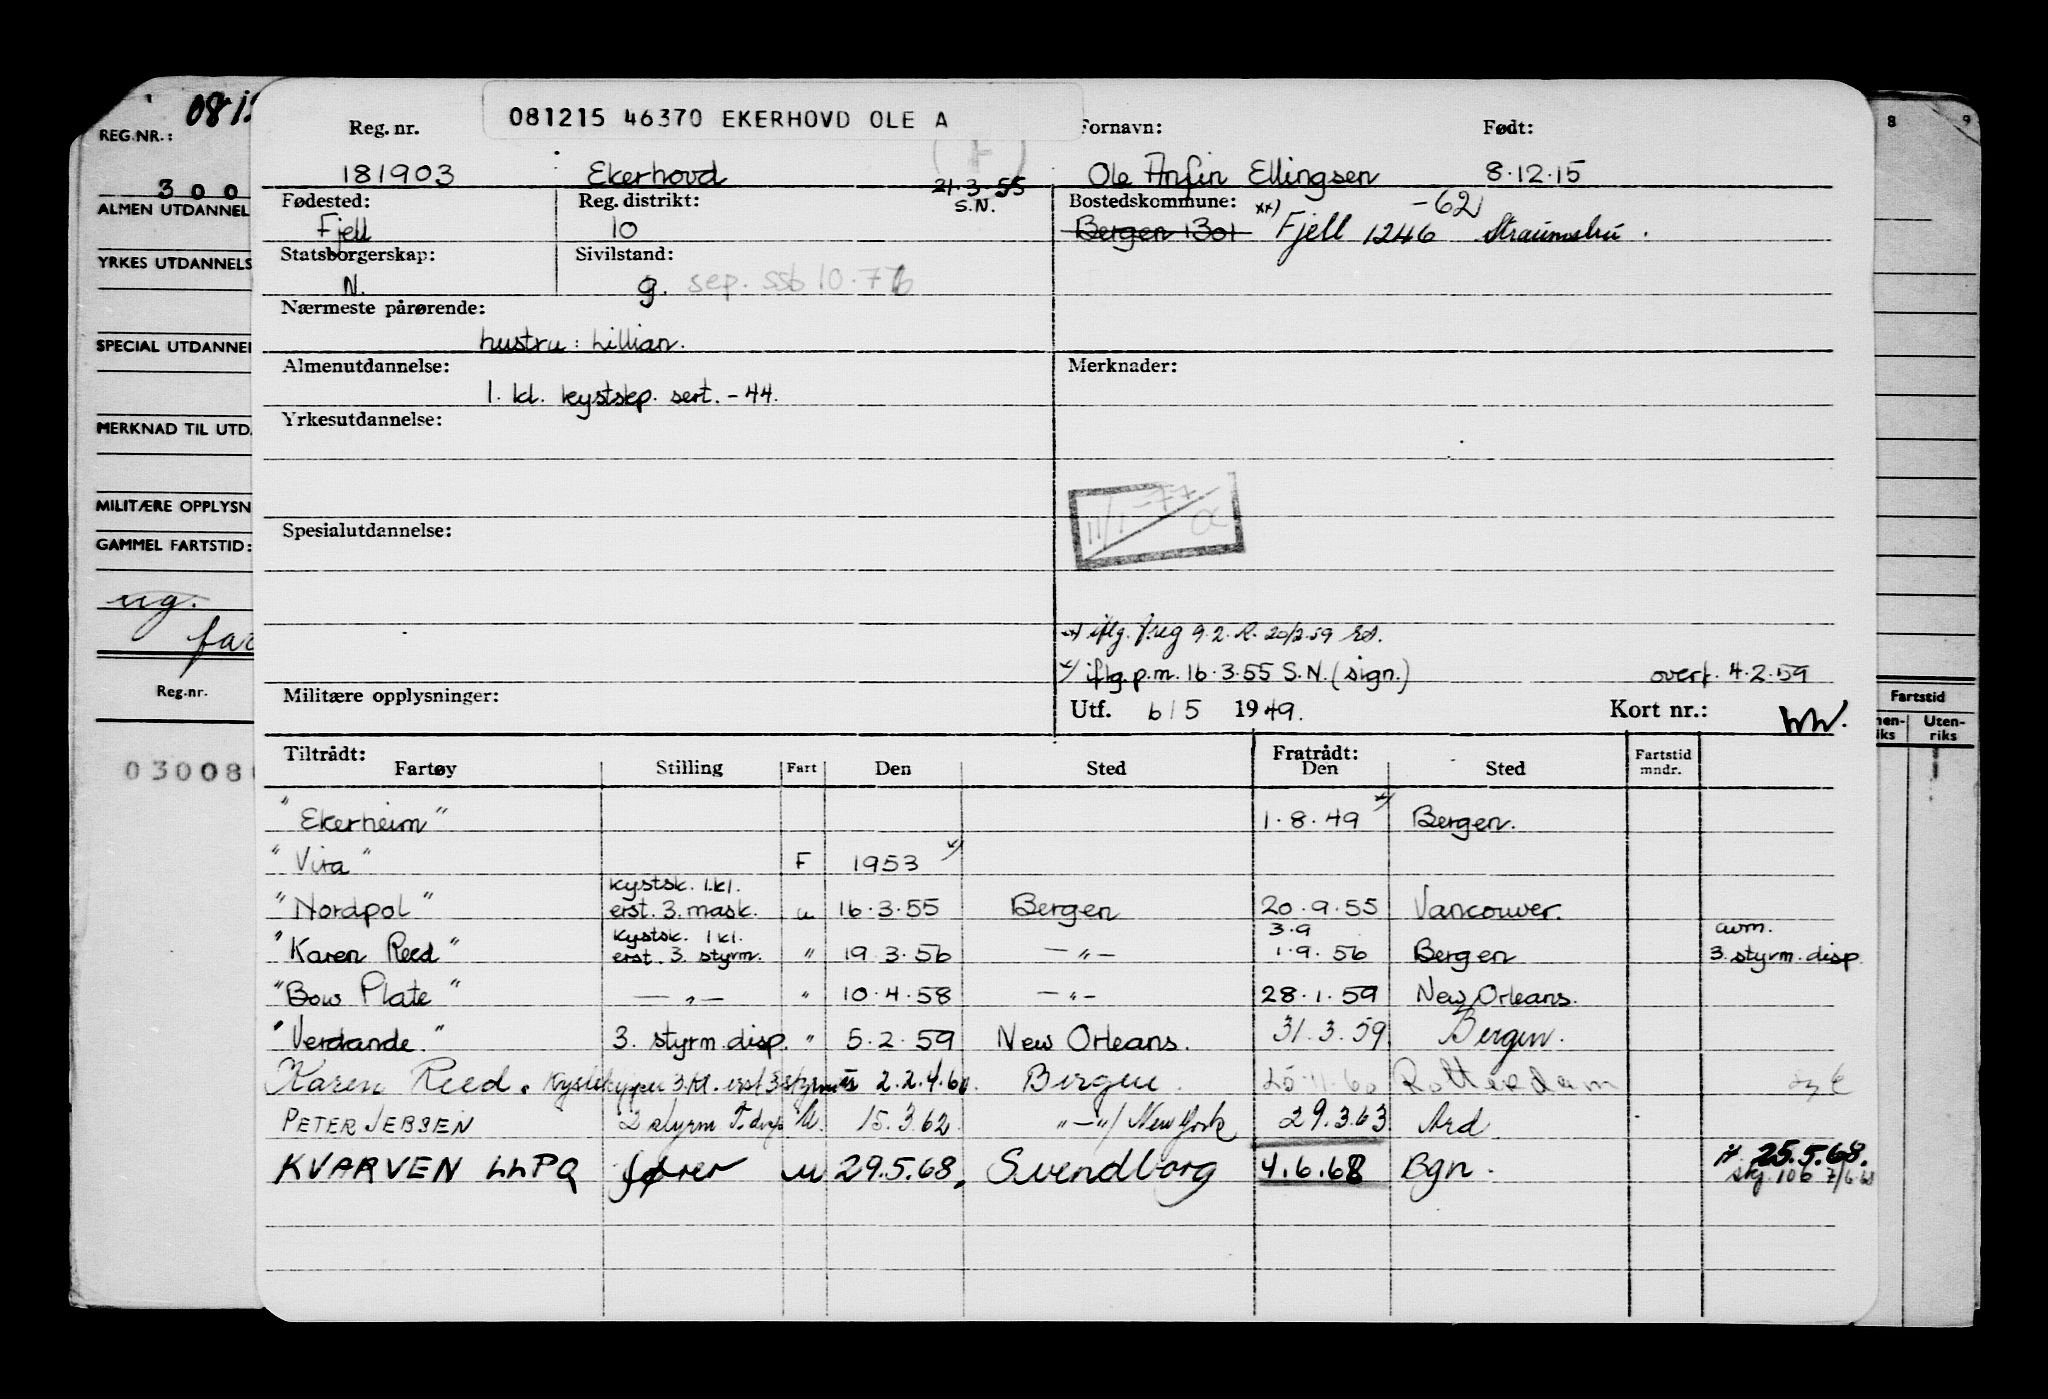 081215 46370 EKERHOVD OLE A
Reg. nr. Fornavn: Født:
181903 Ekerhovd 21.3.55 S.N. Ole Anfin Ellingsen 8.12.15
Fødested: Reg. distrikt: Bostedskommune:
Fjell 10 Bergen 1301 xx) Fjell 1246 -62 Straumsbru.
Statsborgerskap: Sivilstand:
N. g. sep. ssb 10.776
Nærmeste pårørende:
hustru: Lillian.
Almenutdannelse: Merknader:
1. kl. kystskp. sert. - 44.
Yrkesutdannelse:
11/1-77
Spesialutdannelse:
iflg. f.reg 9.2. R. 20/2.59
x) iflg. p.m. 16.3.55 S.N. (sign.) overf. 4.2.59
Militære opplysninger: Utf. 6/5 1949. Kort nr.:
Tiltrådt: Fratrådt:
Fartøy Stilling Fart Den Sted Den Sted Fartstid mndr.
"Ekerheim" 1.8.49 x) Bergen.
"Vira" F 1953 x)
"Nordpol" kystsk. 1.kl. erst. 3. mask. u 16.3.55 Bergen 20.9.55 Vancouver.
"Karen Reed" kystsk. 1 kl. erst. 3. styrm. " 19.3.56 -"- 3.9 1.9.56 Bergen avm. 3. styrm. disp.
"Bow Plate" -"- " 10.4.58 -"- 28.1.59 New Orleans.
"Verdande." 3. styrm. disp. " 5.2.59 New Orleans. 31.3.59 Bergen.
Karen Reed. Bergen. 25.11.60 Rotterdam
PETER JEBSEN 2 styrm U. 15.3.62 "-"/ New York 29.3.63 Ard
KVARVEN LLPQ fører u 29.5.68. Svendborg 4.6.68 Bgn. 25.5.68.
106 7/6.68
REG.NR.:
300
ALMEN UTDANNEL
YRKES UTDANNELS
SPECIAL UTDANNEL
MERKNAD TIL UTD.
MILITÆRE OPPLYSN
GAMMEL FARTSTID:
ug.
Reg.nr.
03008
8 9
Fartstid
nen-riks Uten-riks